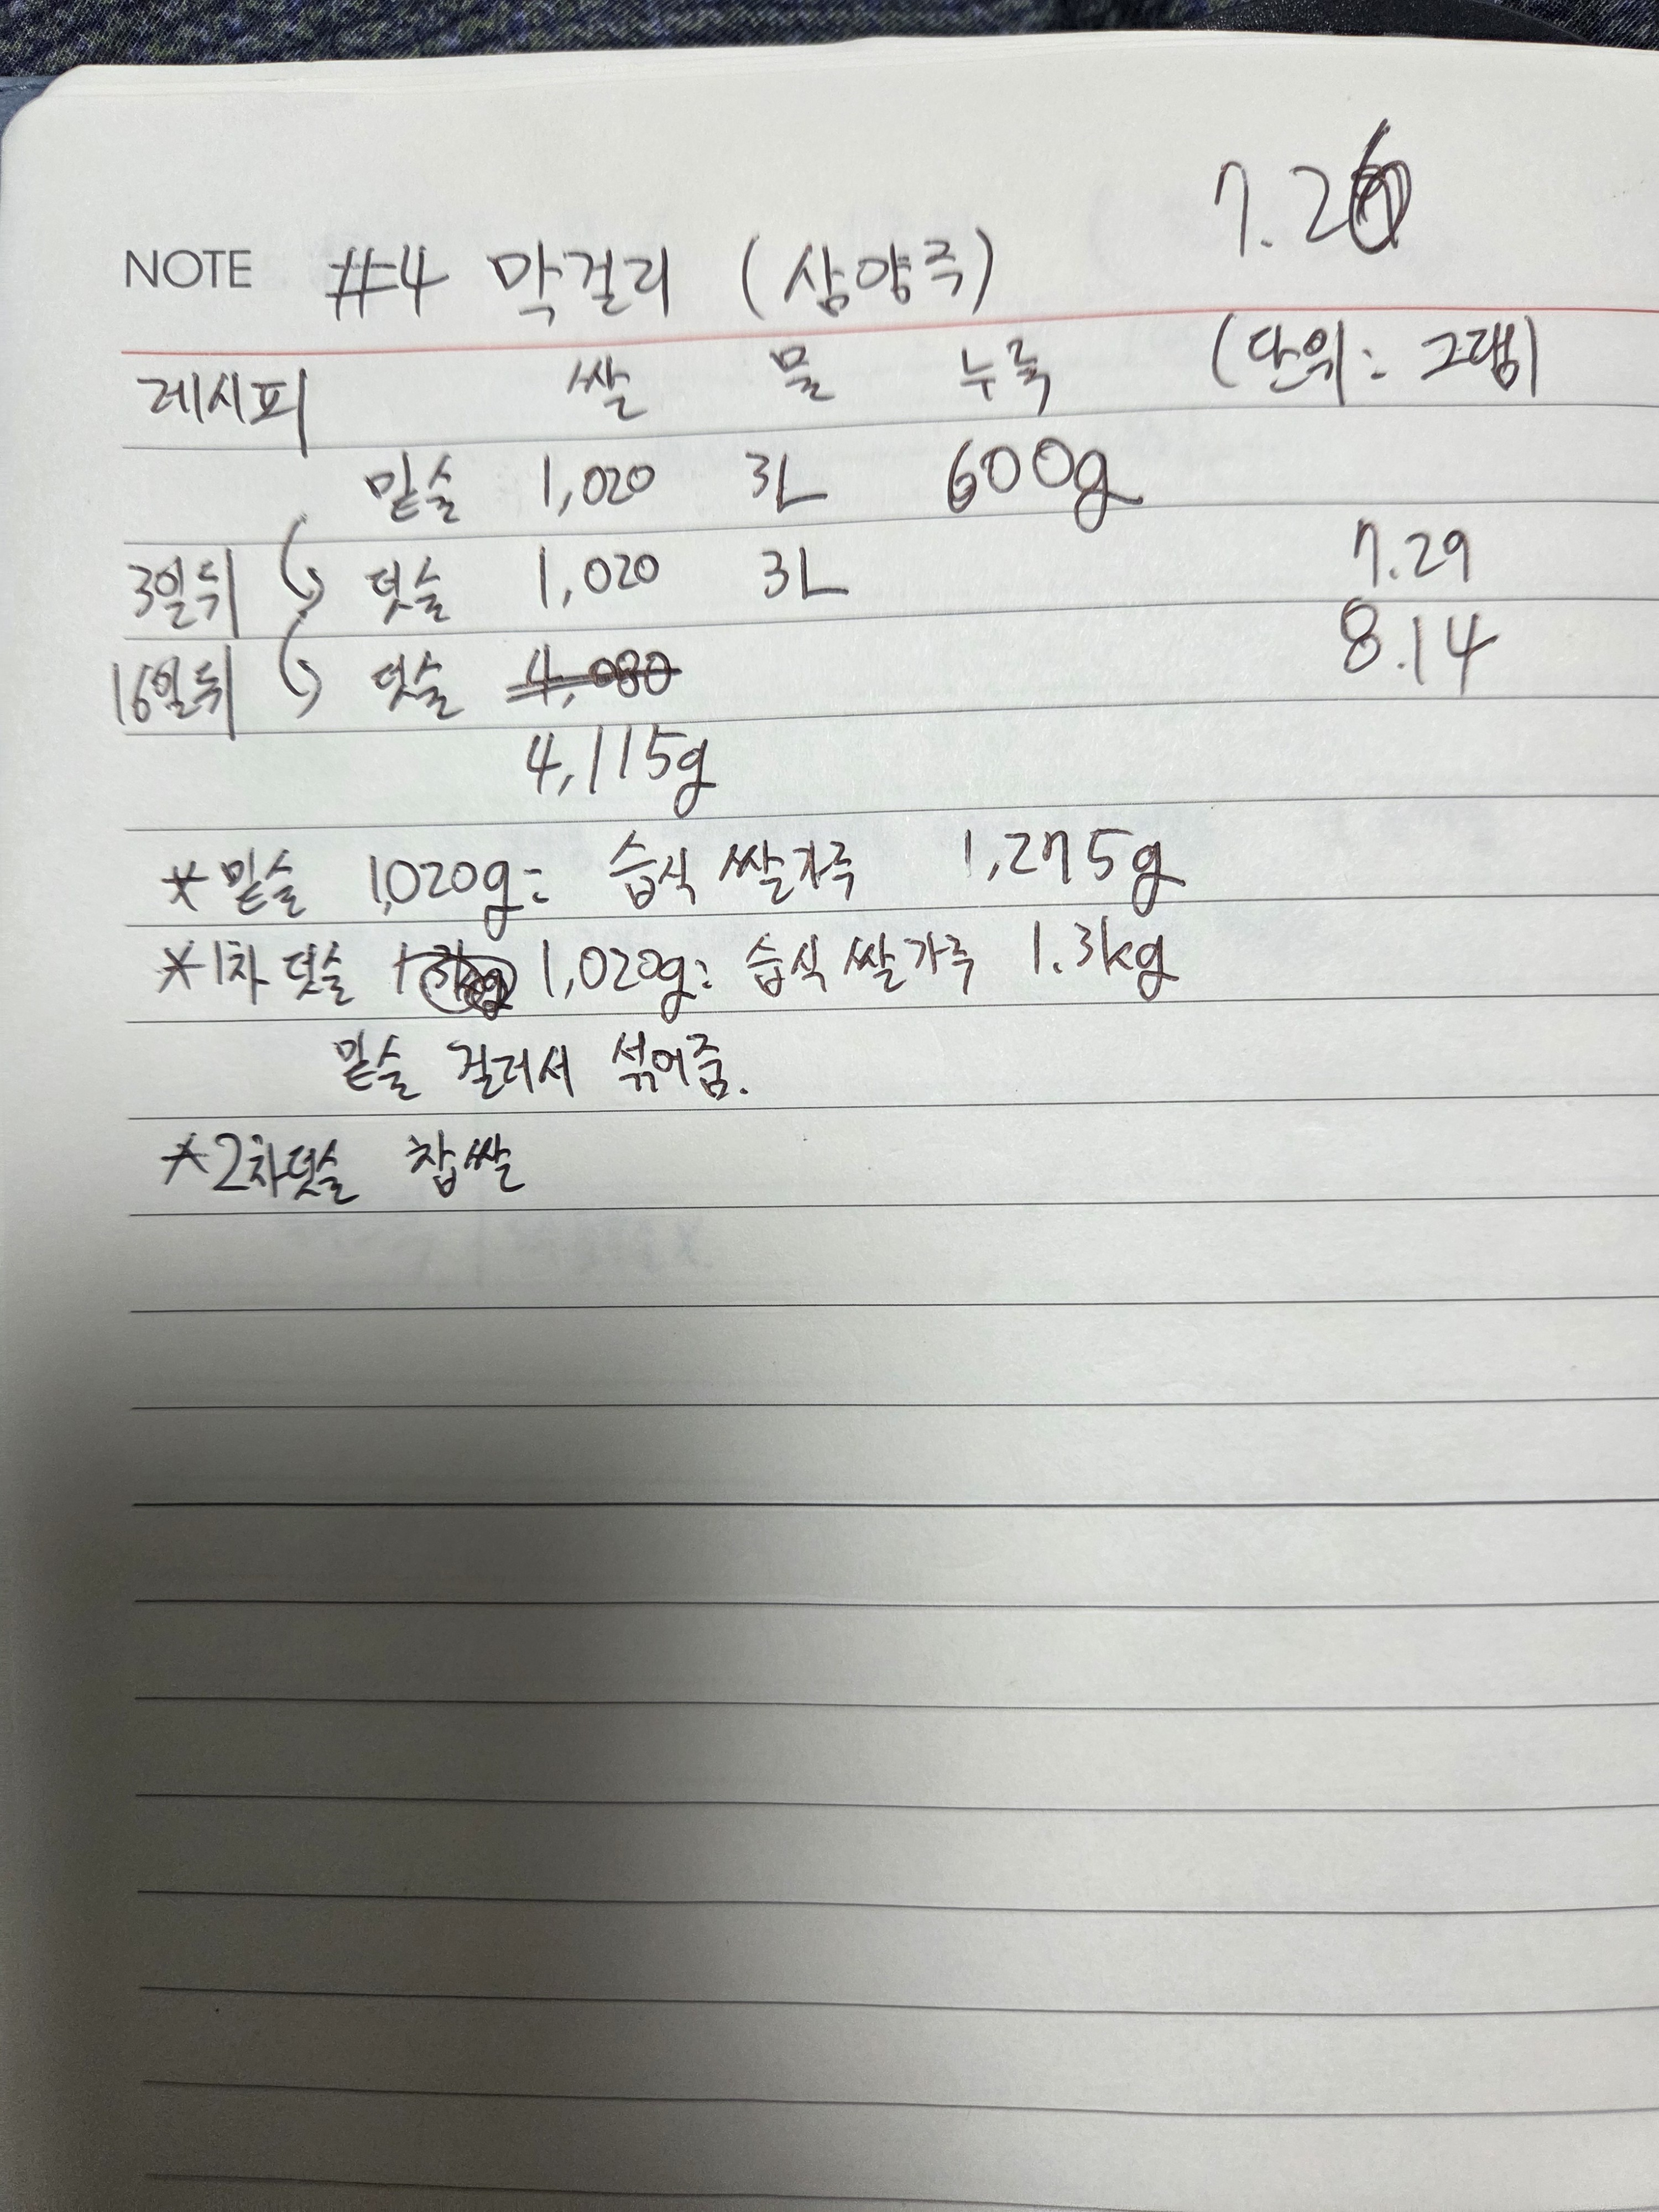 7.26
NOTE #4 막걸리 (삼양주)
레시피 쌀 물 누룩 (단위: 그램)
밑술 1,020 3L 600g
3일뒤 덧술 1,020 3L 7.29
16일뒤 덧술 4,080 8.14
4,115g
*밑술 1,020g: 습식 쌀가루 1,275g
*1차 덧술 1,020g: 습식 쌀가루 1.3kg
밑술 걸러서 섞어줌.
*2차덧술 찹쌀